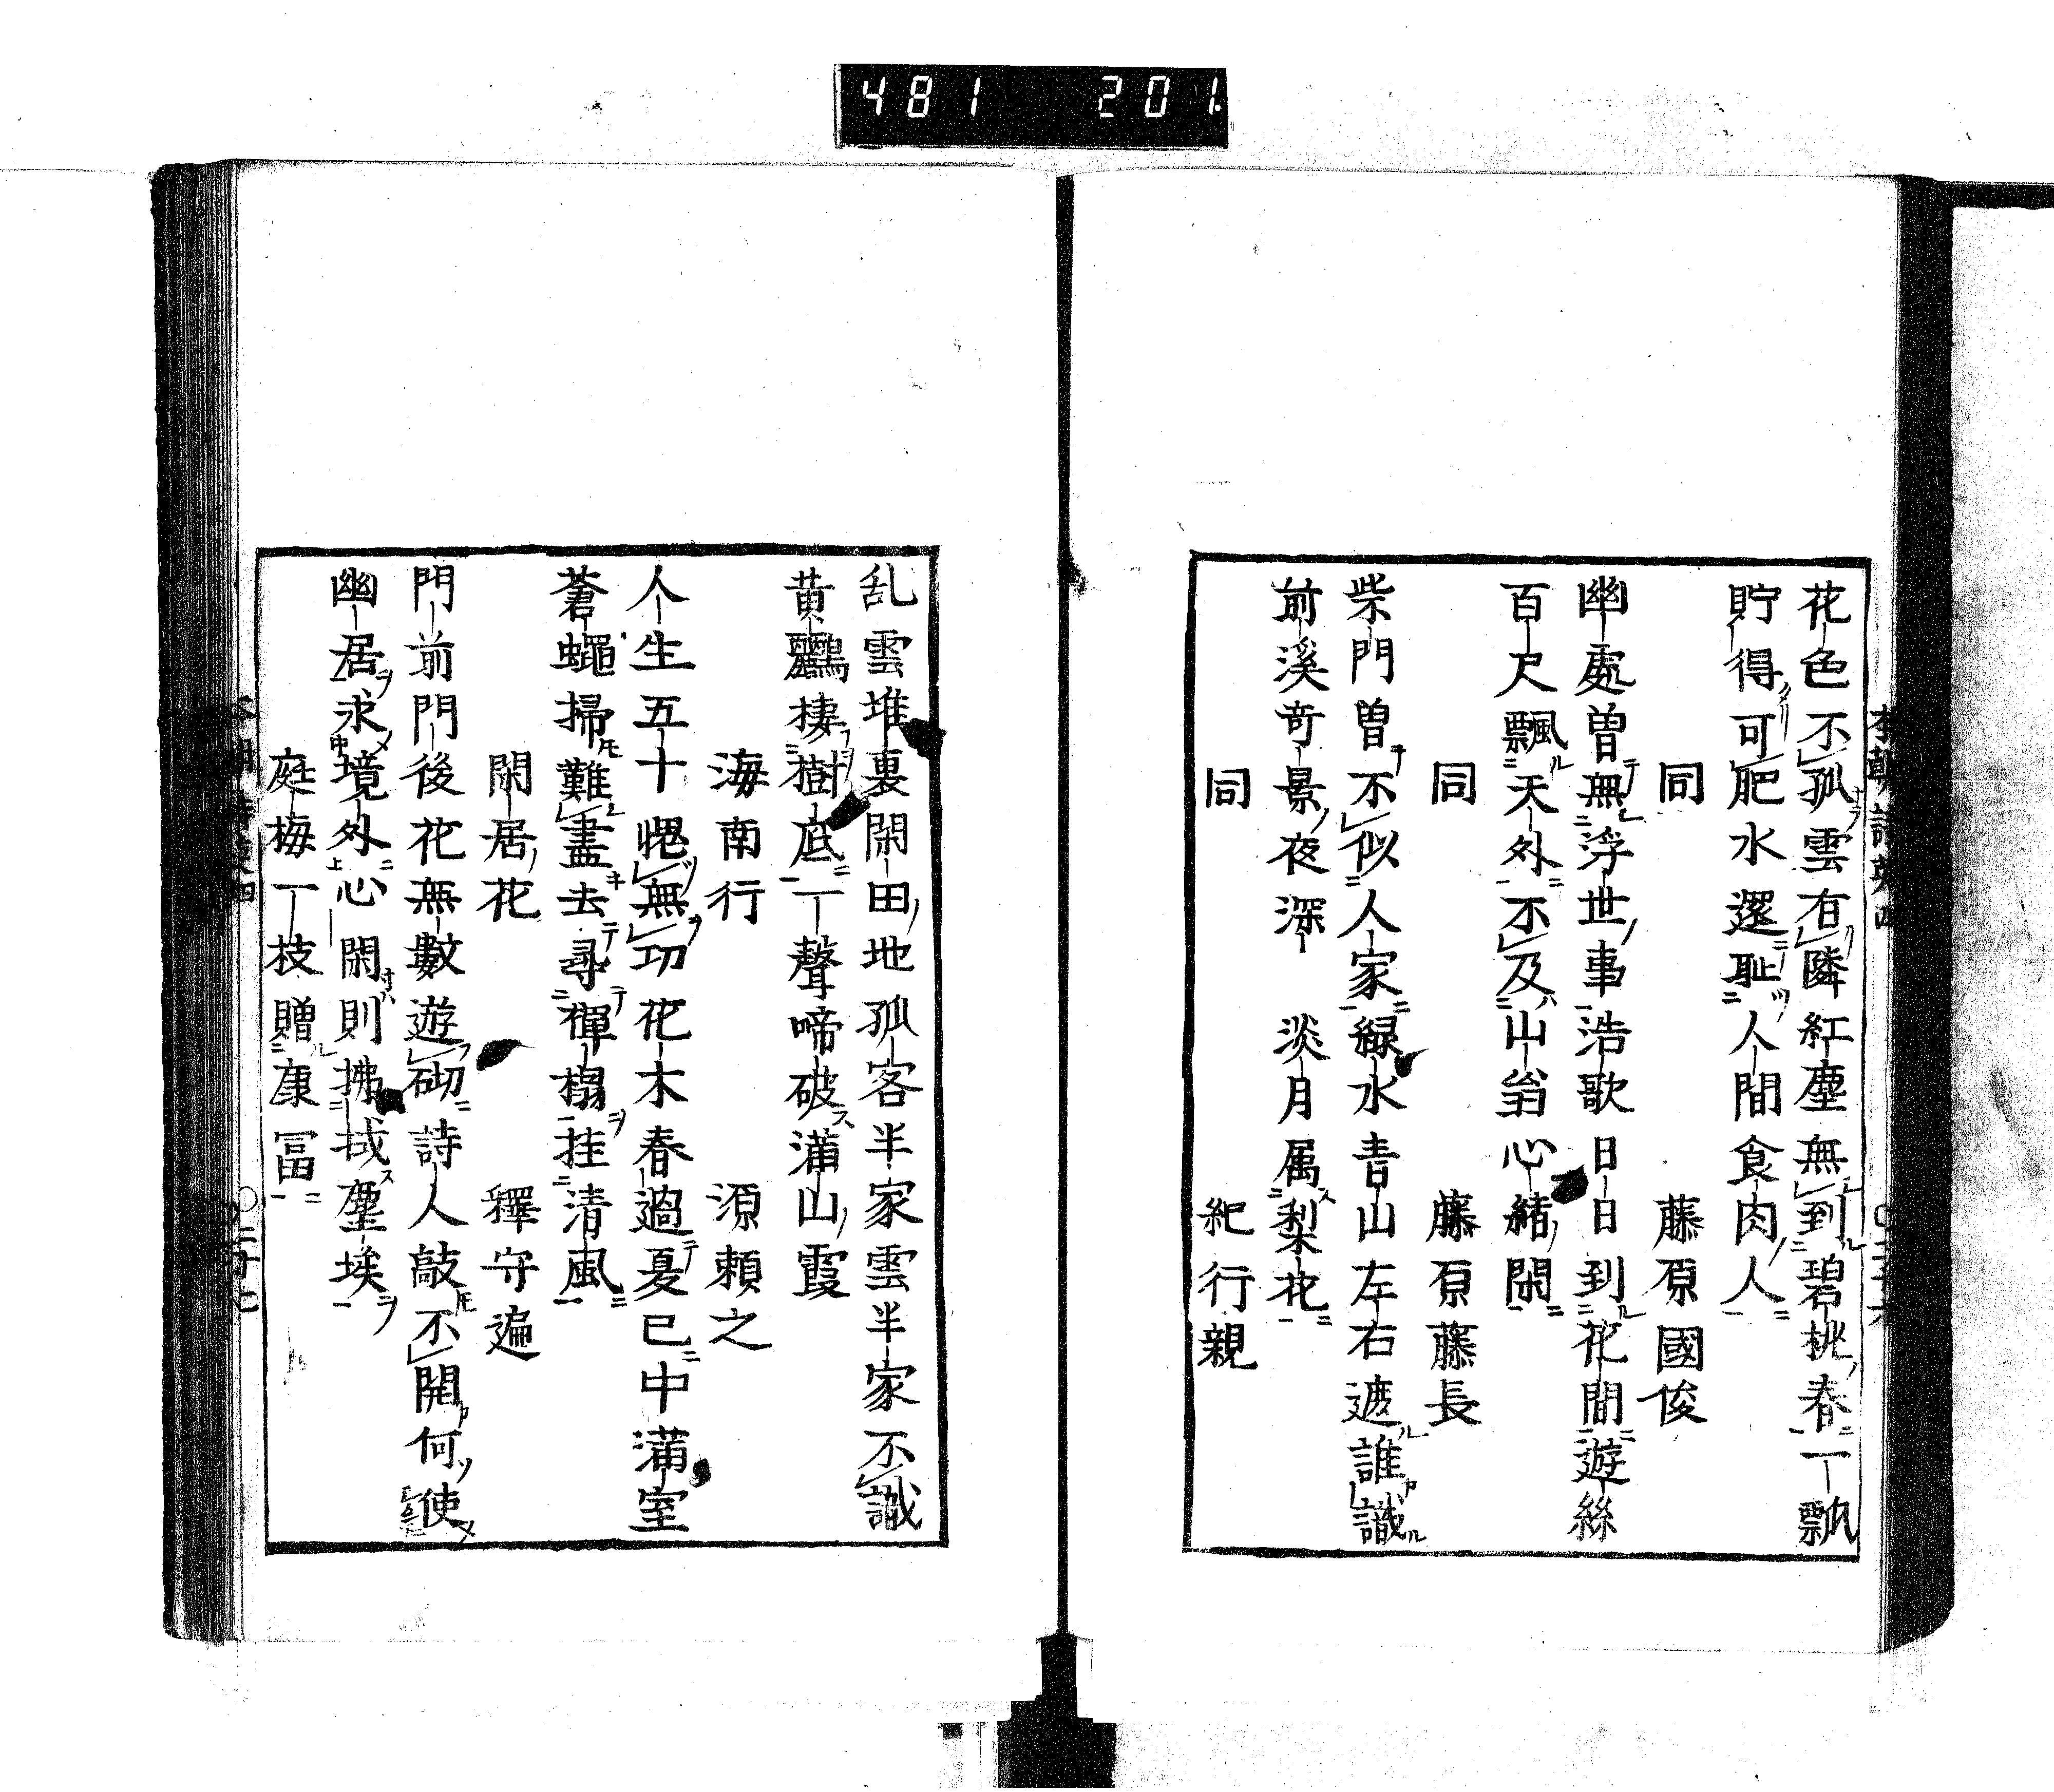 481 201
花色不孤雲有隣紅塵無到碧桃春一瓢
貯得可肥水還恥人間食肉人
同 藤原國俊
幽處曽無浮世事浩歌日日到花間遊絲
百尺飄天外不及山翁心緒閑
同 藤原藤長
柴門曽不似人家緑水青山左右遮誰識
前溪奇景夜深 淡月属梨花
同 紀行親
乱雲堆裏閑田地孤客半家雲半家不識
黄鸝棲樹底一聲啼破満山霞
海南行 源頼之
人生五十愧無功花木春過夏已中満室
蒼蠅掃難盡去尋禪榻挂清風
閑居花 釋守遍
門前門後花無數遊砌詩人敲不開何使
幽居求境外心閑則拂拭塵埃
庭梅一枝贈康冨